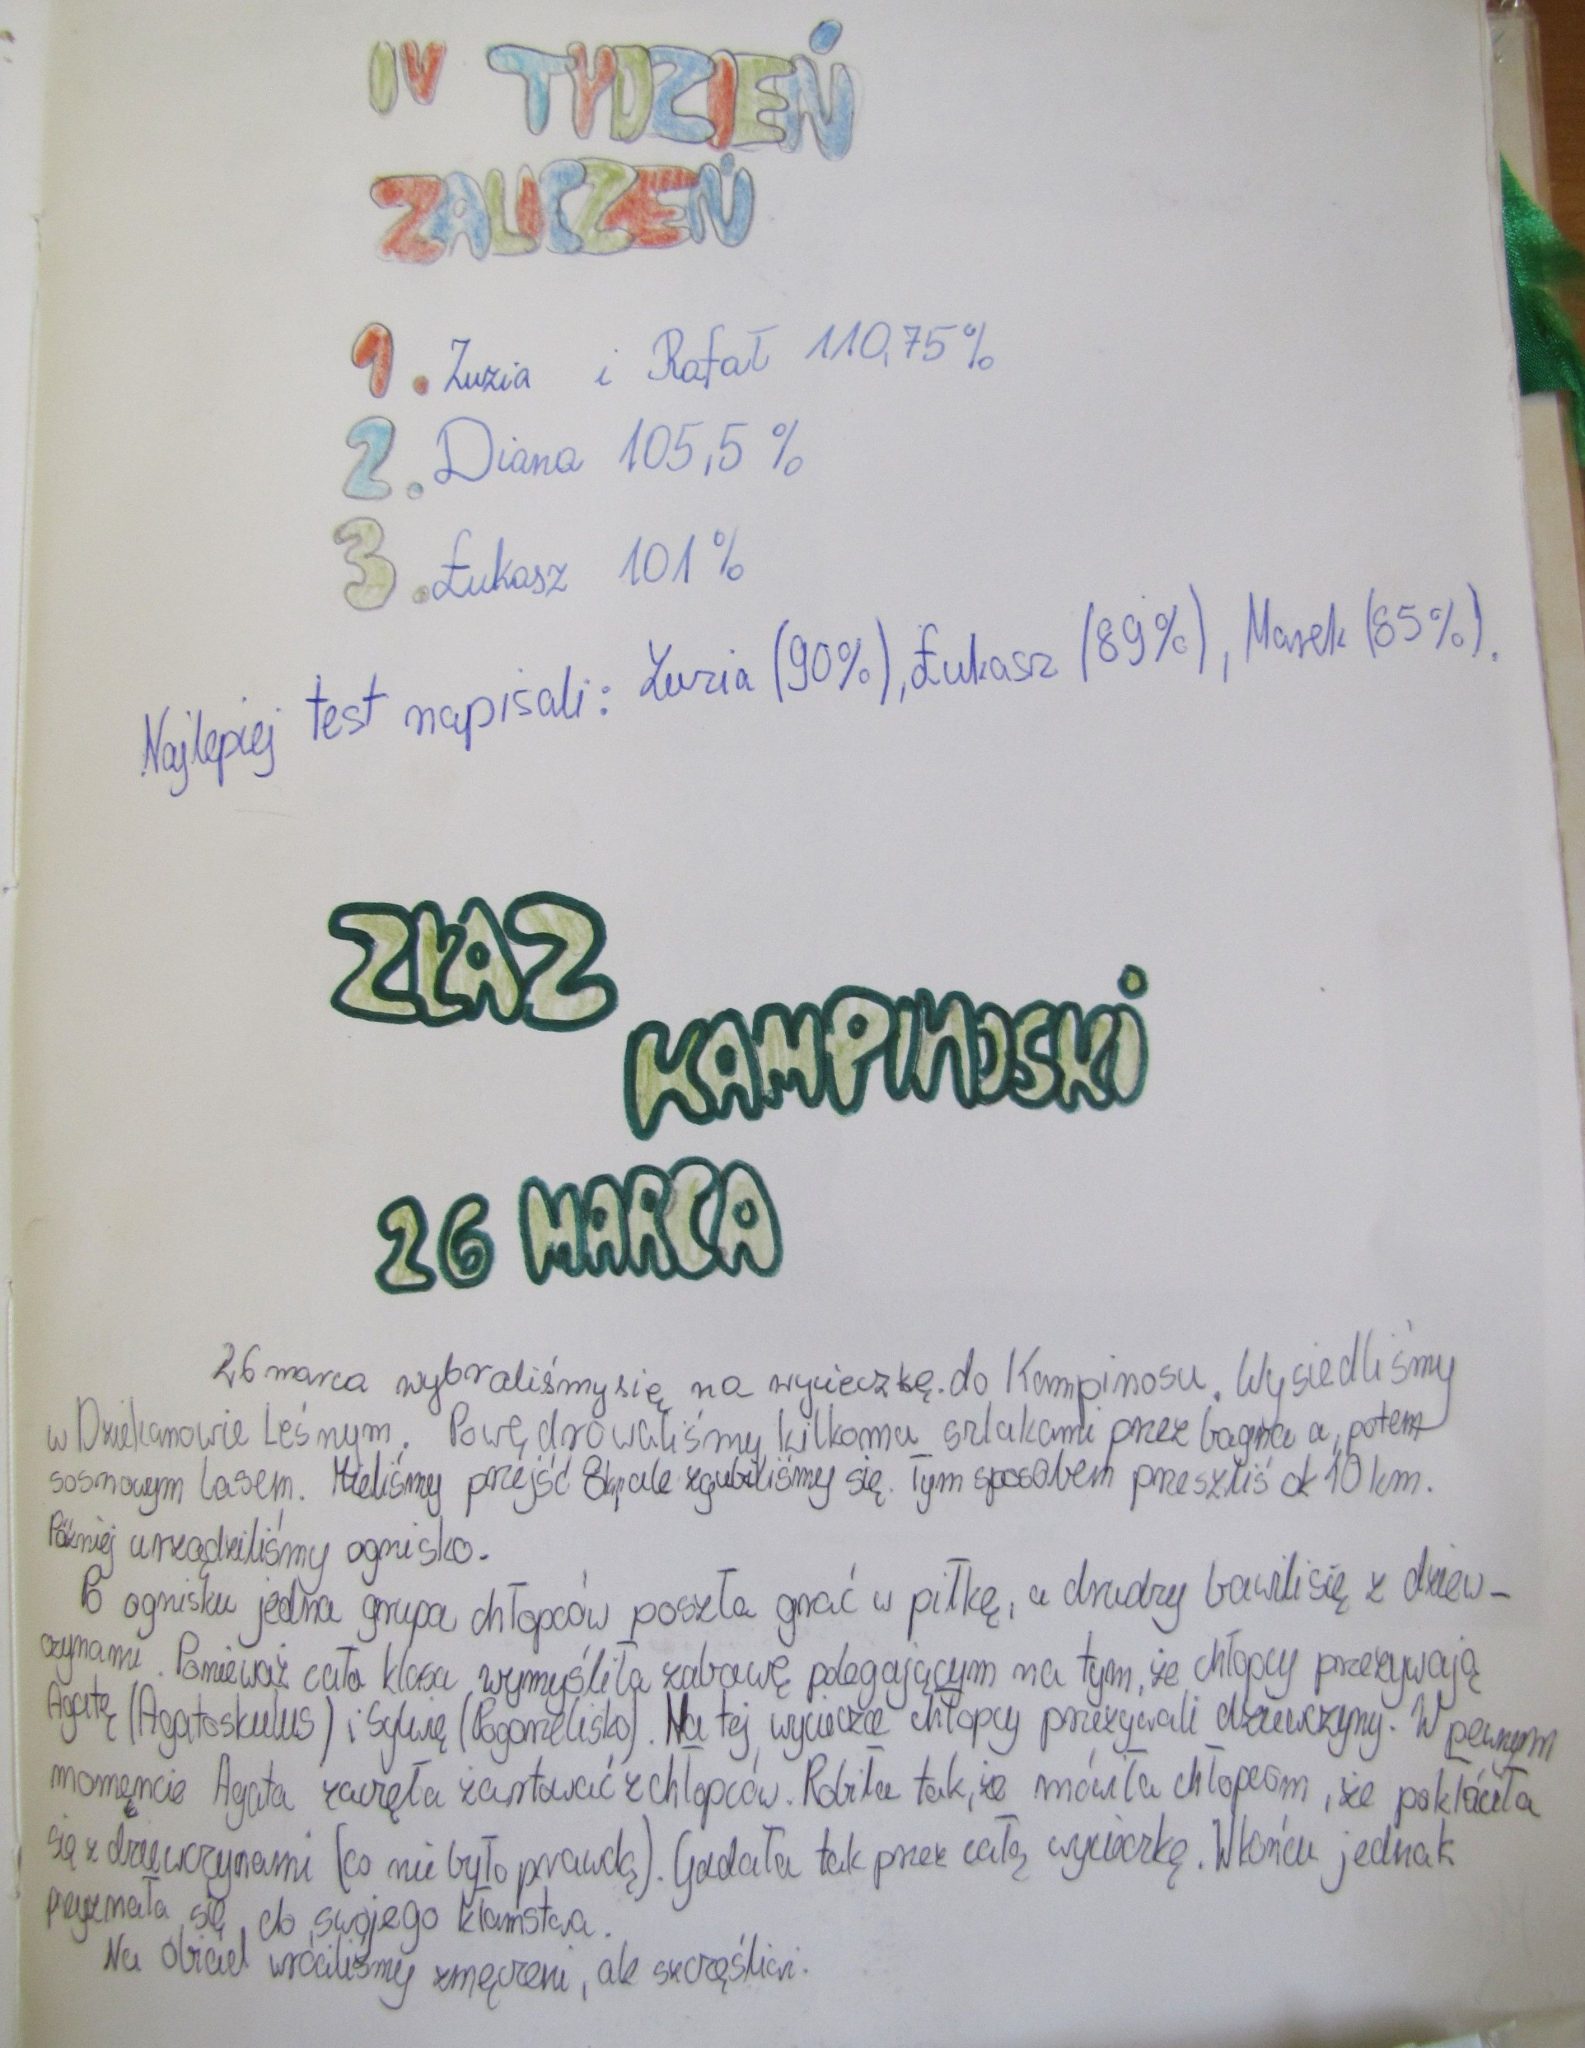 IV TYDZIEŃ
ZALICZEŃ
1. Zuzia i Rafał 110,75%
2. Diana 105,5%
3. Łukasz 101%
Najlepiej test napisali: Zuzia (90%), Łukasz (89%), Marek (85%).
ZŁAZ
KAMPINOSKI
26 MARCA
26 marca wybraliśmy się na wycieczkę do Kampinosu. Wysiedliśmy
w Dziekanowie Leśnym. Powędrowaliśmy kilkoma szlakami przez bagna a, potem
sosnowym lasem. Mieliśmy przejść 8km ale zgubiliśmy się. Tym sposobem przeszliś ok 10 km.
Później urządziliśmy ognisko.
Po ognisku jedna grupa chłopców poszła grać w piłkę, a drudzy bawili się z dziew-
czynami. Ponieważ cała klasa wymyśliła zabawę polegającym na tym, że chłopcy przezywają
Agatę (Agatoskulus) i Sylwię (Pogorzelisko). Na tej wycieczce chłopcy przezywali dziewczyny. W pewnym
momęncie Agata zaczęła żartować z chłopców. Robiła tak, że mówiła chłopcom, że pokłóciła
się z dziewczynami (co nie było prawdą). Gadała tak przez całą wycieczkę. W końcu jednak
przyznała się do swojego kłamstwa.
Na obiad wróciliśmy zmęczeni, ale szczęśliwi.